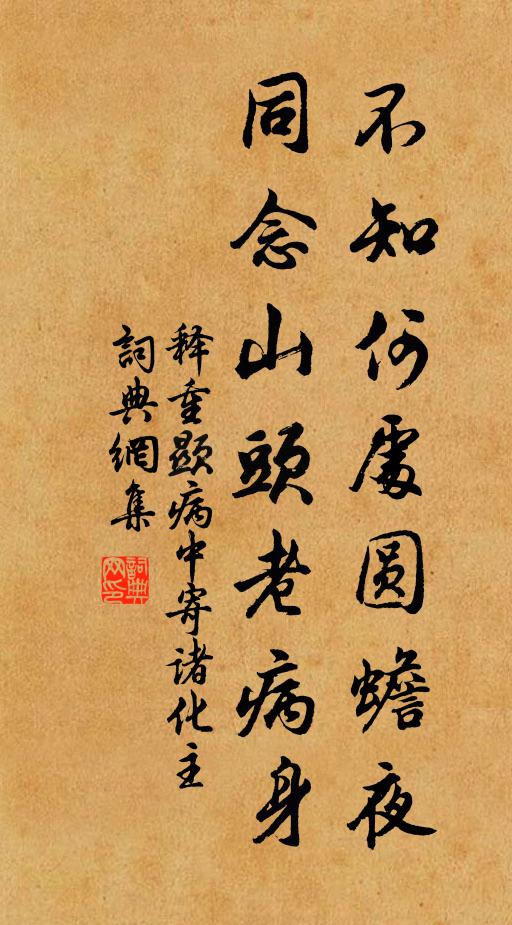 不知何處圓蟾夜
同念山頭老病身
释重顯病中寄諸化主
詞典網集
詞典
网印